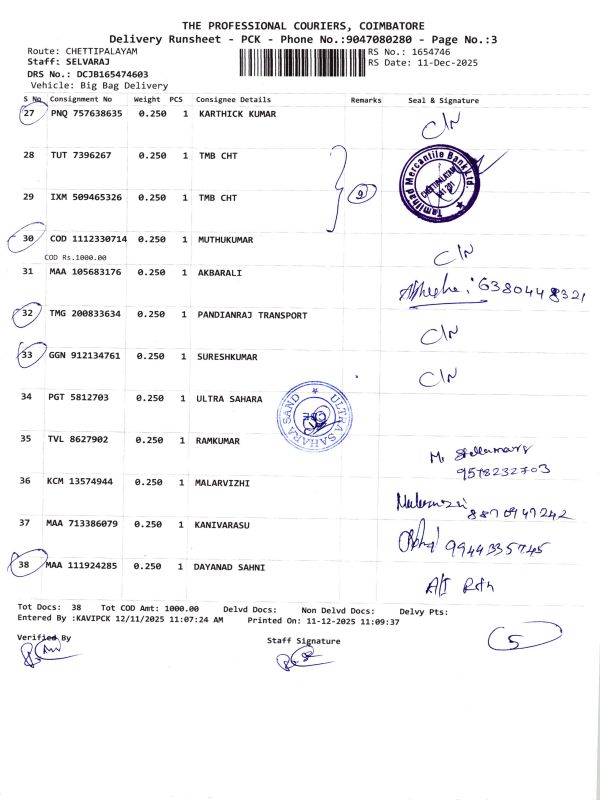 THE PROFESSIONAL COURIERS, COIMBATORE
Delivery Runsheet - PCK - Phone No.:9047080280 - Page No.:3
Route: CHETTIPALAYAM RS No.: 1654746
Staff: SELVARAJ RS Date: 11-Dec-2025
DRS No.: DCJB165474603
Vehicle: Big Bag Delivery
S No Consignment No Weight PCS Consignee Details Remarks Seal & Signature
27 PNQ 757638635 0.250 1 KARTHICK KUMAR C/N
28 TUT 7396267 0.250 1 TMB CHT
Tamilnad Mercantile Bank Ltd.
CHETTIPALAYAM
29 IXM 509465326 0.250 1 TMB CHT
30 COD 1112330714 0.250 1 MUTHUKUMAR C/N
COD Rs.1000.00
31 MAA 105683176 0.250 1 AKBARALI 6380448321
32 TMG 200833634 0.250 1 PANDIANRAJ TRANSPORT C/N
33 GGN 912134761 0.250 1 SURESHKUMAR C/N
34 PGT 5812703 0.250 1 ULTRA SAHARA
ULTRA SAHARA SAND
35 TVL 8627902 0.250 1 RAMKUMAR M. Stellamary
9578232703
36 KCM 13574944 0.250 1 MALARVIZHI 8870947242
37 MAA 713386079 0.250 1 KANIVARASU 9944335745
38 MAA 111924285 0.250 1 DAYANAD SAHNI A/I Rtn
Tot Docs: 38 Tot COD Amt: 1000.00 Delvd Docs: Non Delvd Docs: Delvy Pts:
Entered By :KAVIPCK 12/11/2025 11:07:24 AM Printed On: 11-12-2025 11:09:37
Verified By Staff Signature 5